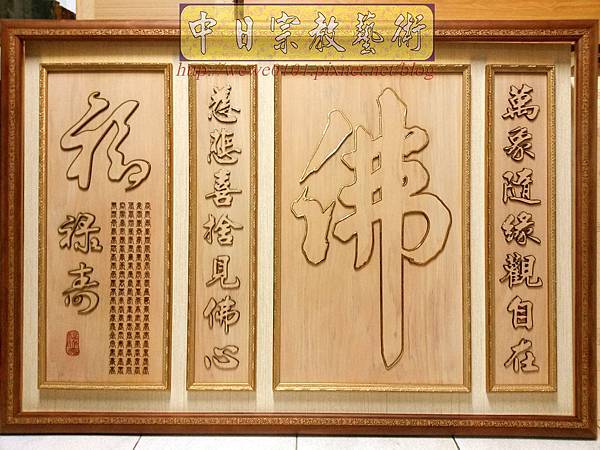 中日宗教藝術
http://wewe0101.pixnet.net/blog
萬象隨緣觀自在
佛
慈悲喜捨見佛心
福祿壽